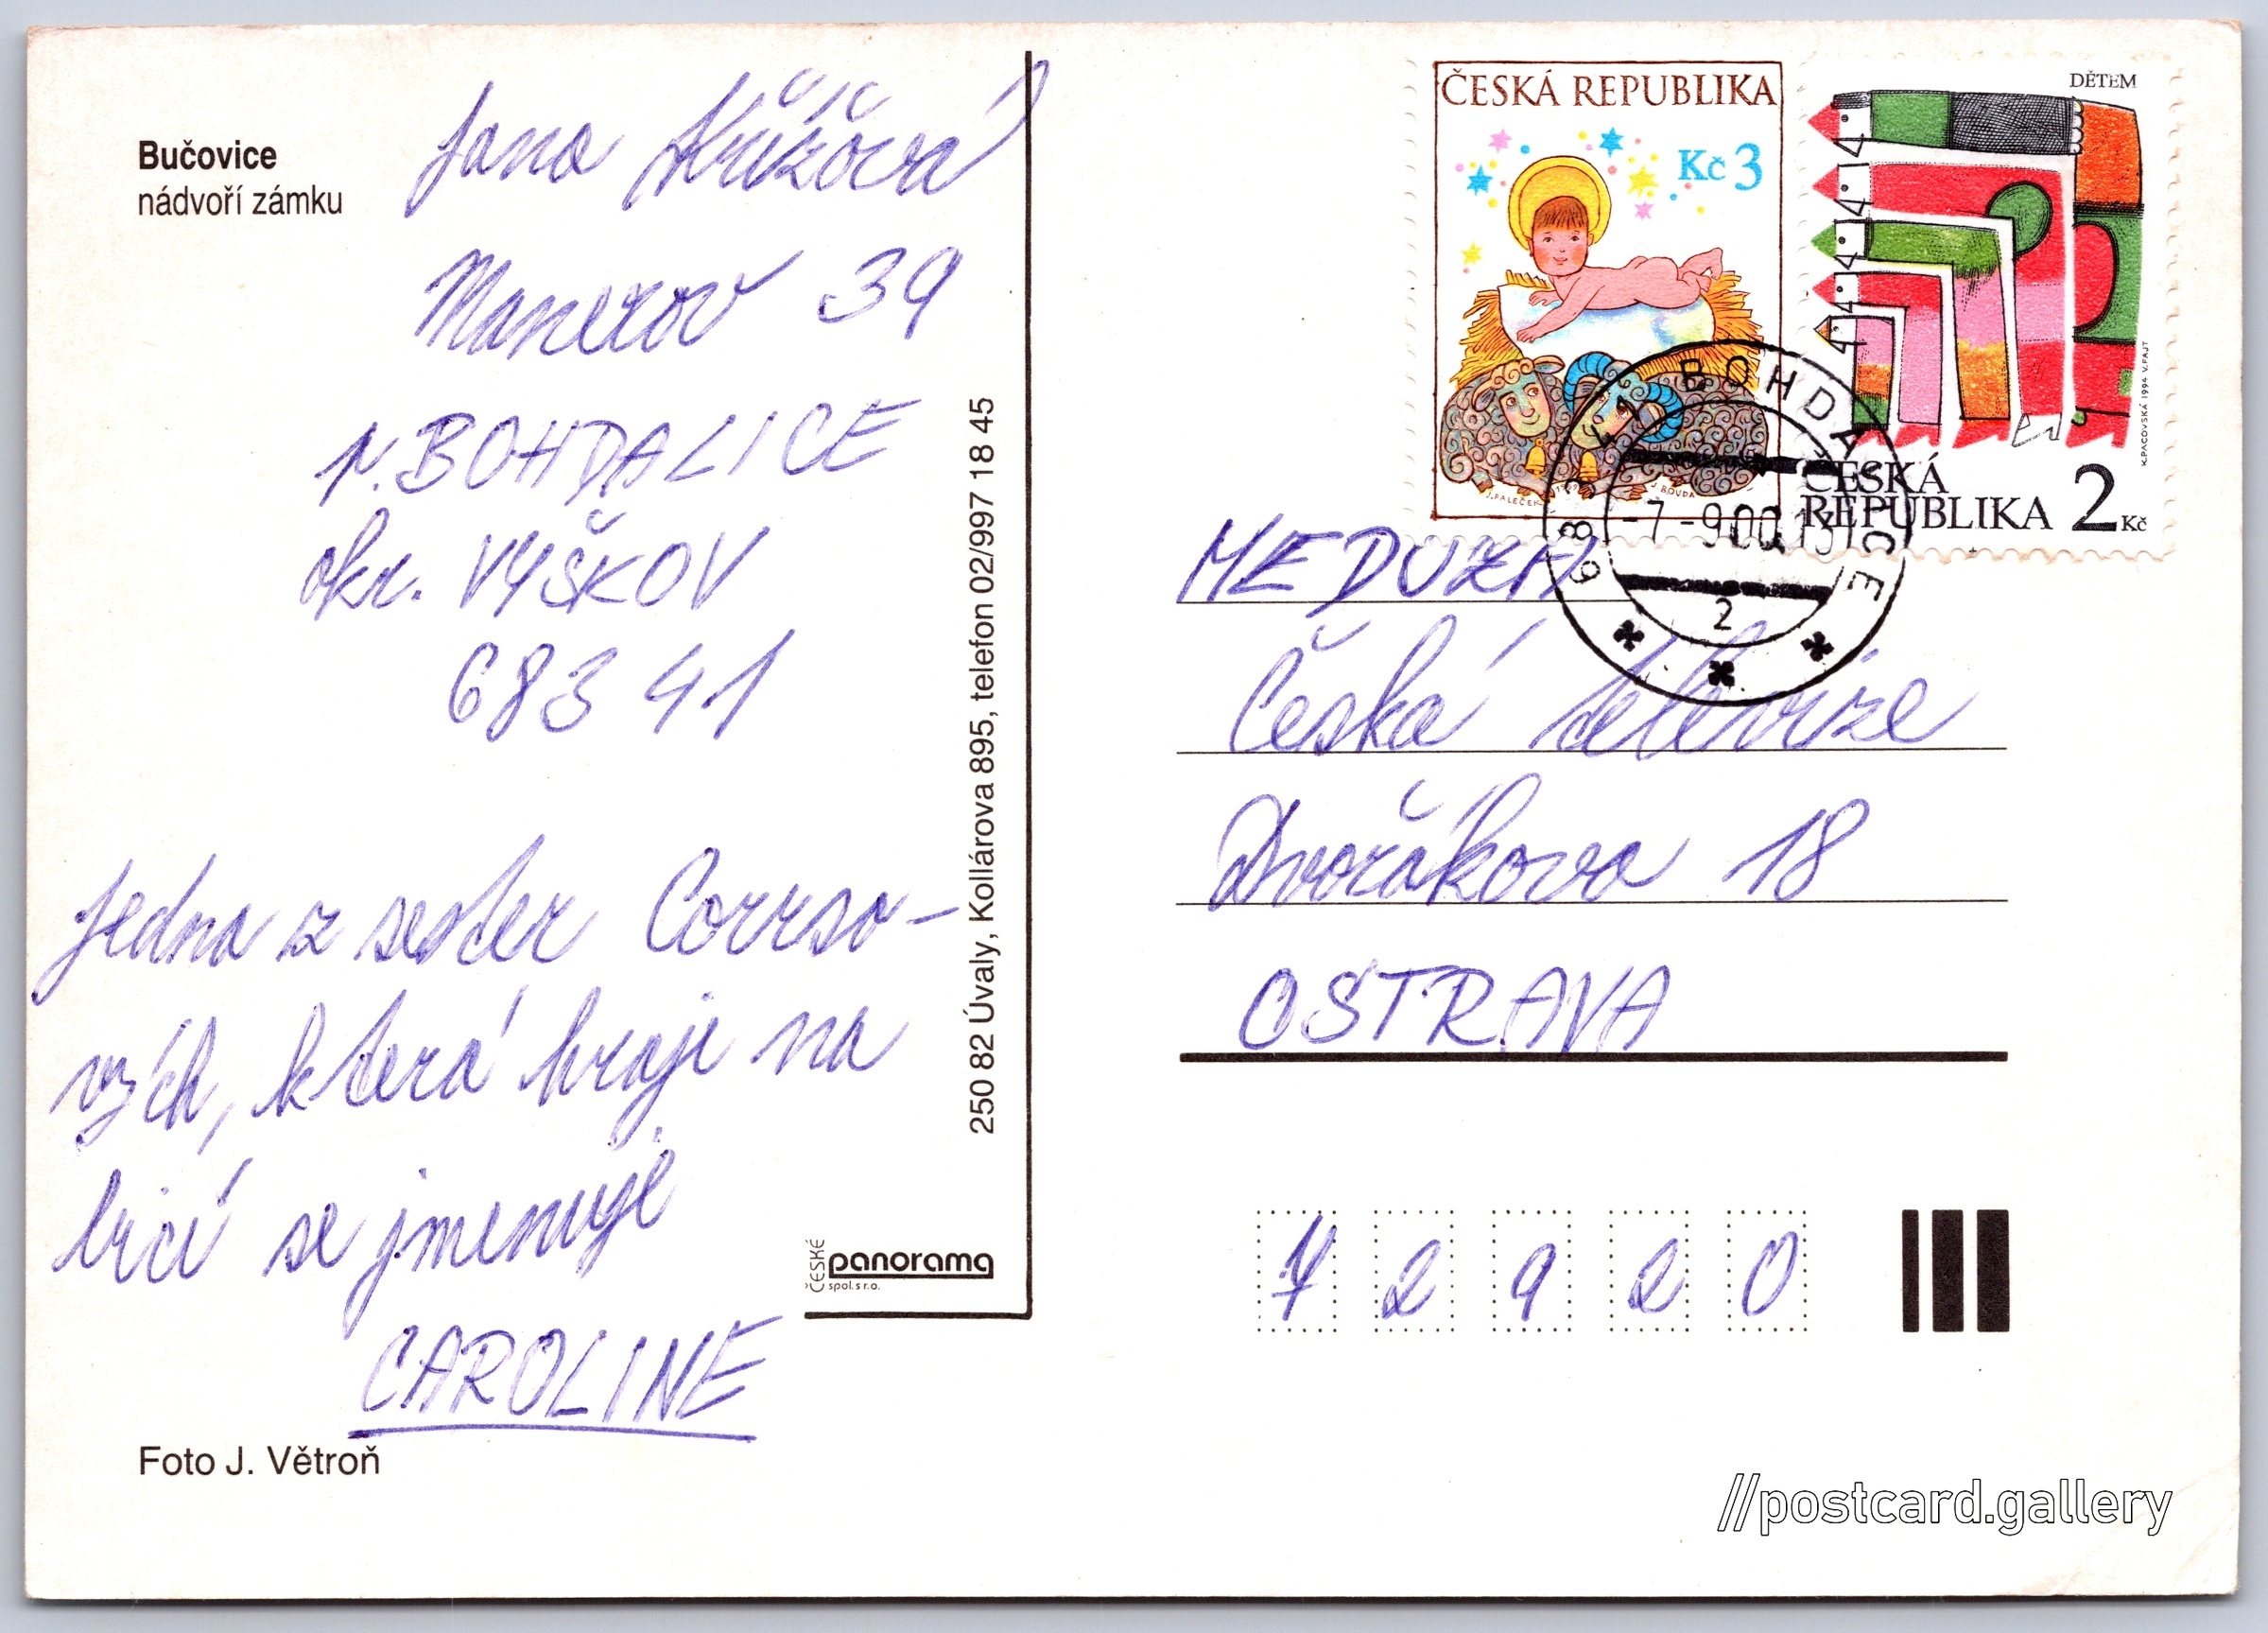 Bučovice
nádvoří zámku
Jana Křížová
Manerov 39
p. BOHDALICE
okr. VYŠKOV
683 41
Jedna z sester Corrso-
vých, která hraje na
bicí se jmenuje
CAROLINE
Foto J. Větroň
250 82 Úvaly, Kollárova 895, telefon 02/997 18 45
ČESKÉ
panorama
spol. s r.o.
ČESKÁ REPUBLIKA
Kč 3
J. PALEČEK 1999 J. BOUDA
DĚTEM
K. PACOVSKÁ 1994 V. FAJT
ČESKÁ
REPUBLIKA 2 Kč
683 41 BOHDALICE
-7.-9.00 13
2
MEDUZA
Česká televize
Dvořákova 18
OSTRAVA
72920
//postcard.gallery